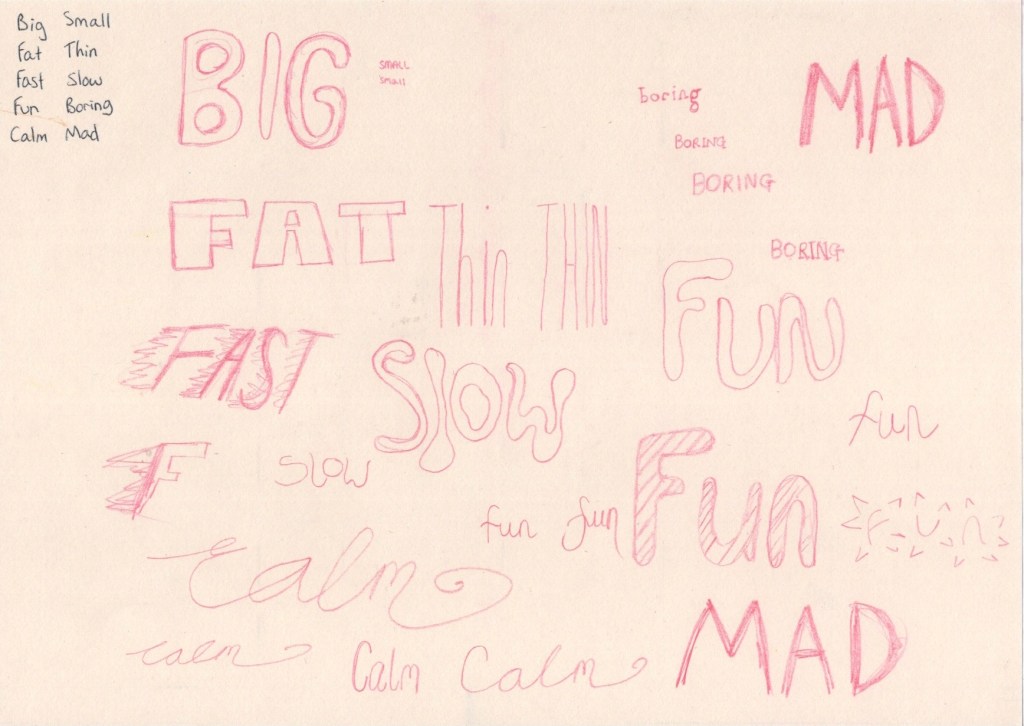 Big Small
Fat Thin
Fast Slow
Fun Boring
Calm Mad
BIG
SMALL
small
boring
MAD
BORING
BORING
FAT
Thin THIN
BORING
FUN
FAST
Slow
fun
F
SLOW
Fun
fun fun
FUN
Calm
MAD
calm
Calm Calm